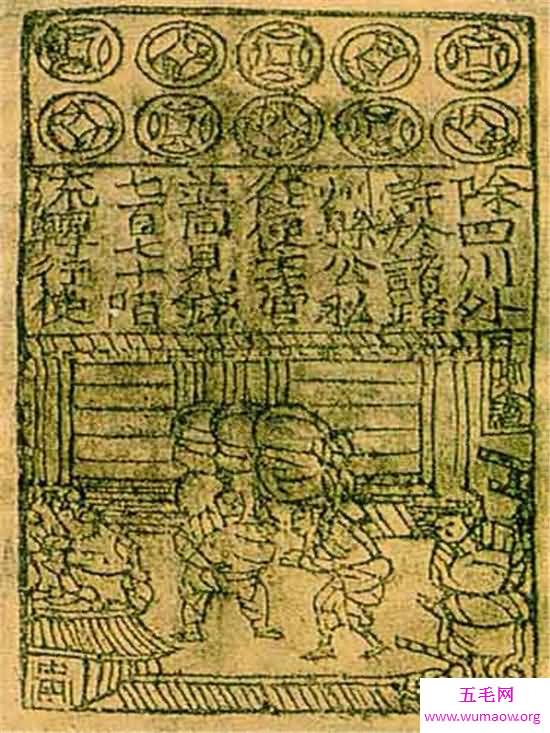 除四川外
許於諸路
州縣公私
從便主管
並同見錢
七百七十陌
流轉行使
五毛网
www.wumaow.org